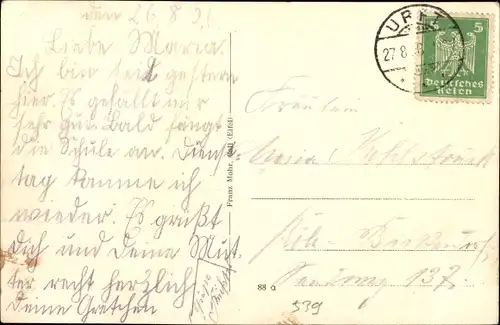 den 26.8.
Liebe Maria.
Ich bin seit gestern
hier. Es gefällt mir
sehr gut. Bald fängt
die Schule an. Diens-
tag komme ich
wieder. Es grüßt
Dich und Deine Mut-
ter recht herzlich
Deine Gretchen
Franz Mohr, (Eifel)
URFT
27.8.
5
Deutsches
Reich
Fräulein
Maria
Köln-
137.
88 a
539